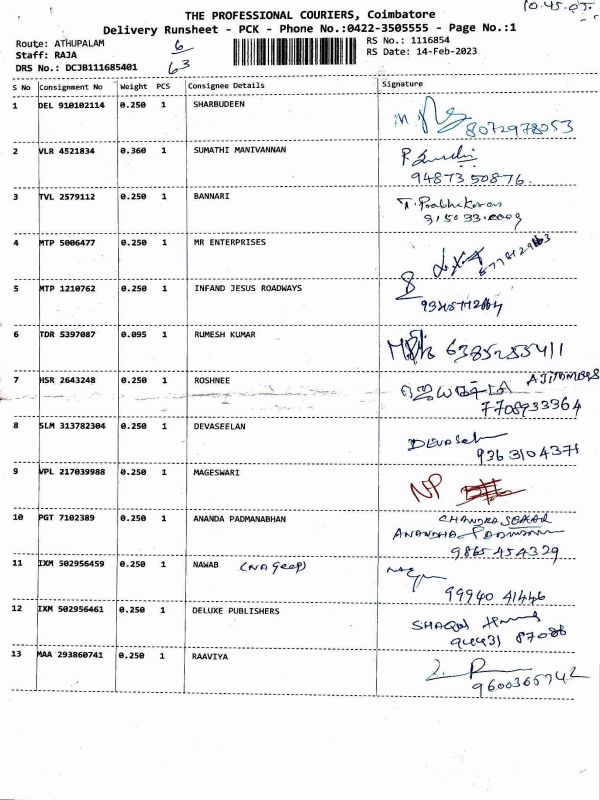 10.45.
THE PROFESSIONAL COURIERS, Coimbatore
Delivery Runsheet - PCK - Phone No.:0422-3505555 - Page No.:1
Route: ATHUPALAM
6
RS No.: 1116854
Staff: RAJA
63
RS Date: 14-Feb-2023
DRS No.: DCJB111685401
S No Consignment No Weight PCS Consignee Details Signature
1 DEL 910102114 0.250 1 SHARBUDEEN
8072978053
2 VLR 4521834 0.360 1 SUMATHI MANIVANNAN
94873 50876.
3 TVL 2579112 0.250 1 BANNARI T. Prabhakaran
4 MTP 5006477 0.250 1 MR ENTERPRISES
5 MTP 1210762 0.250 1 INFAND JESUS ROADWAYS
6 TDR 5397087 0.095 1 RUMESH KUMAR 6385255411
7 HSR 2643248 0.250 1 ROSHNEE
7708933364
8 SLM 313782304 0.250 1 DEVASEELAN
9363104371
9 VPL 217039988 0.250 1 MAGESWARI NP
10 PGT 7102389 0.250 1 ANANDA PADMANABHAN CHANDRA SEKAR
ANANDHA
9865454329
11 IXM 502956459 0.250 1 NAWAB
99940 41446
12 IXM 502956461 0.250 1 DELUXE PUBLISHERS
94431 87086
13 MAA 293860741 0.250 1 RAAVIYA
9600365742